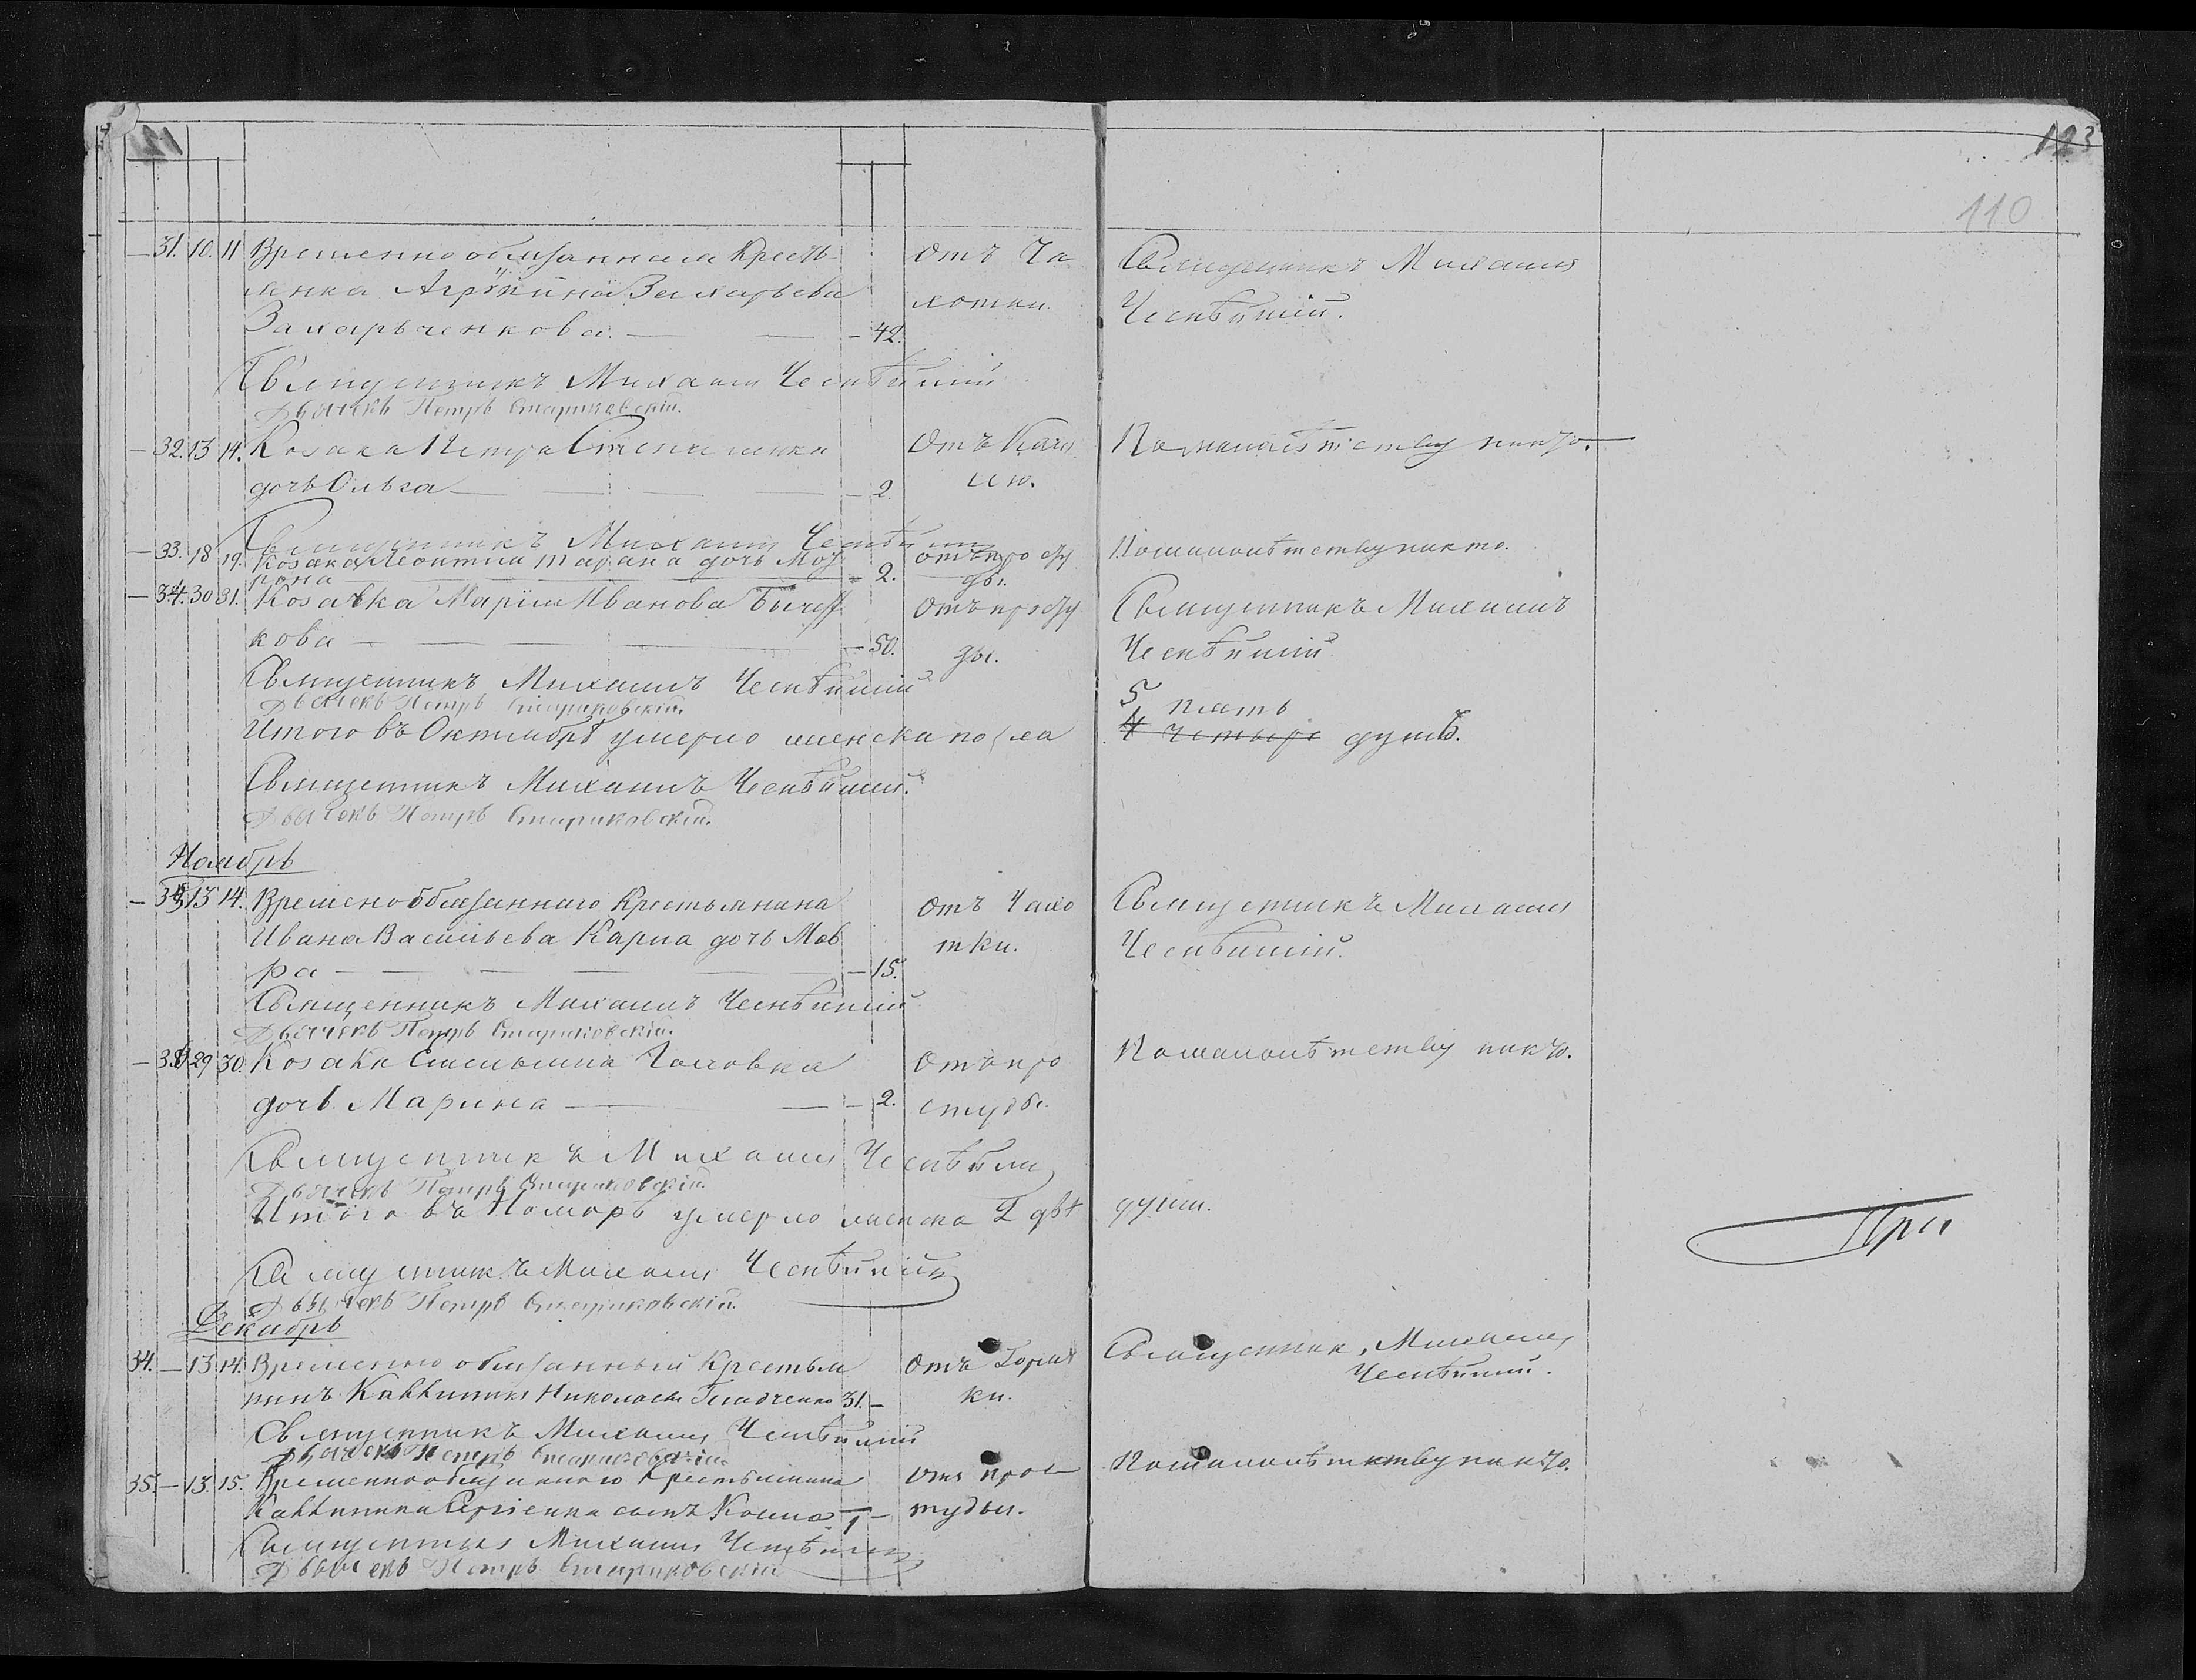 123
110
31. 10. 11 Временнообязанная Кресть-
янка Агрипина Захарьева
Захарьченкова. — — 42. Отъ Чахотки. Священникъ Михаилъ
Чеснѣйшій.
Священникъ Михаилъ Чеснѣйшій
Дьячекъ Петръ Стариковскій.
32. 13 14. Козака Петра
дочь Ольга — — 2. Отъ Кашлю. По малолѣтству никто.
Священникъ Михаилъ Чеснѣйшій
33. 18 19. Козака Леонтия Тарана дочь
— 2. Отъ простуды. По малолѣтству никто.
34. 30 31. Козачка Марія Иванова
кова — — 50. Отъ простуды. Священникъ Михаилъ
Чеснѣйшій
Священникъ Михаилъ Чеснѣйшій
Дьячекъ Петръ Стариковскій.
Итого въ Октябрѣ умерло женска пола 5 пять
4 четыре душъ.
Священникъ Михаилъ Чеснѣйшій.
Дьячекъ Петръ Стариковскій.
Ноябрь
35 13 14. Временообязаннаго Крестьянина
Ивана Васильева Карпа дочь Мавра — — 15. Отъ Чахотки. Священникъ Михаилъ
Чеснѣйшій.
Священникъ Михаилъ Чеснѣйшій
Дьячекъ Петръ Стариковскій.
29 30. Козака Головка
дочь Марина — — 2. Отъ простуды. По малолѣтству никто.
Священникъ Михаилъ Чеснѣйшій
Дьячекъ Петръ Стариковскій.
Итого въ Ноябрѣ умерло женска 2 двѣ душы.
При
Священникъ Михаилъ Чеснѣйшій
Дьячекъ Петръ Стариковскій.
Декабрь
34. — 13 14. Временно обязанный Крестья
нинъ Каллиникъ Николаевъ Гладченко 31. — Отъ Горячки. Священник, Михаилъ
Чеснѣйшій.
Священникъ Михаилъ Чеснѣйшій
Дьячекъ Петръ Стариковскій.
35. — 13. 15. Временнообязаннаго Крестьянина
Каллиника Сергіенка сынъ 1 — Отъ простуды. По малолѣтству никто.
Священникъ Михаилъ Чеснѣйшій
Дьячекъ Петръ Стариковскій